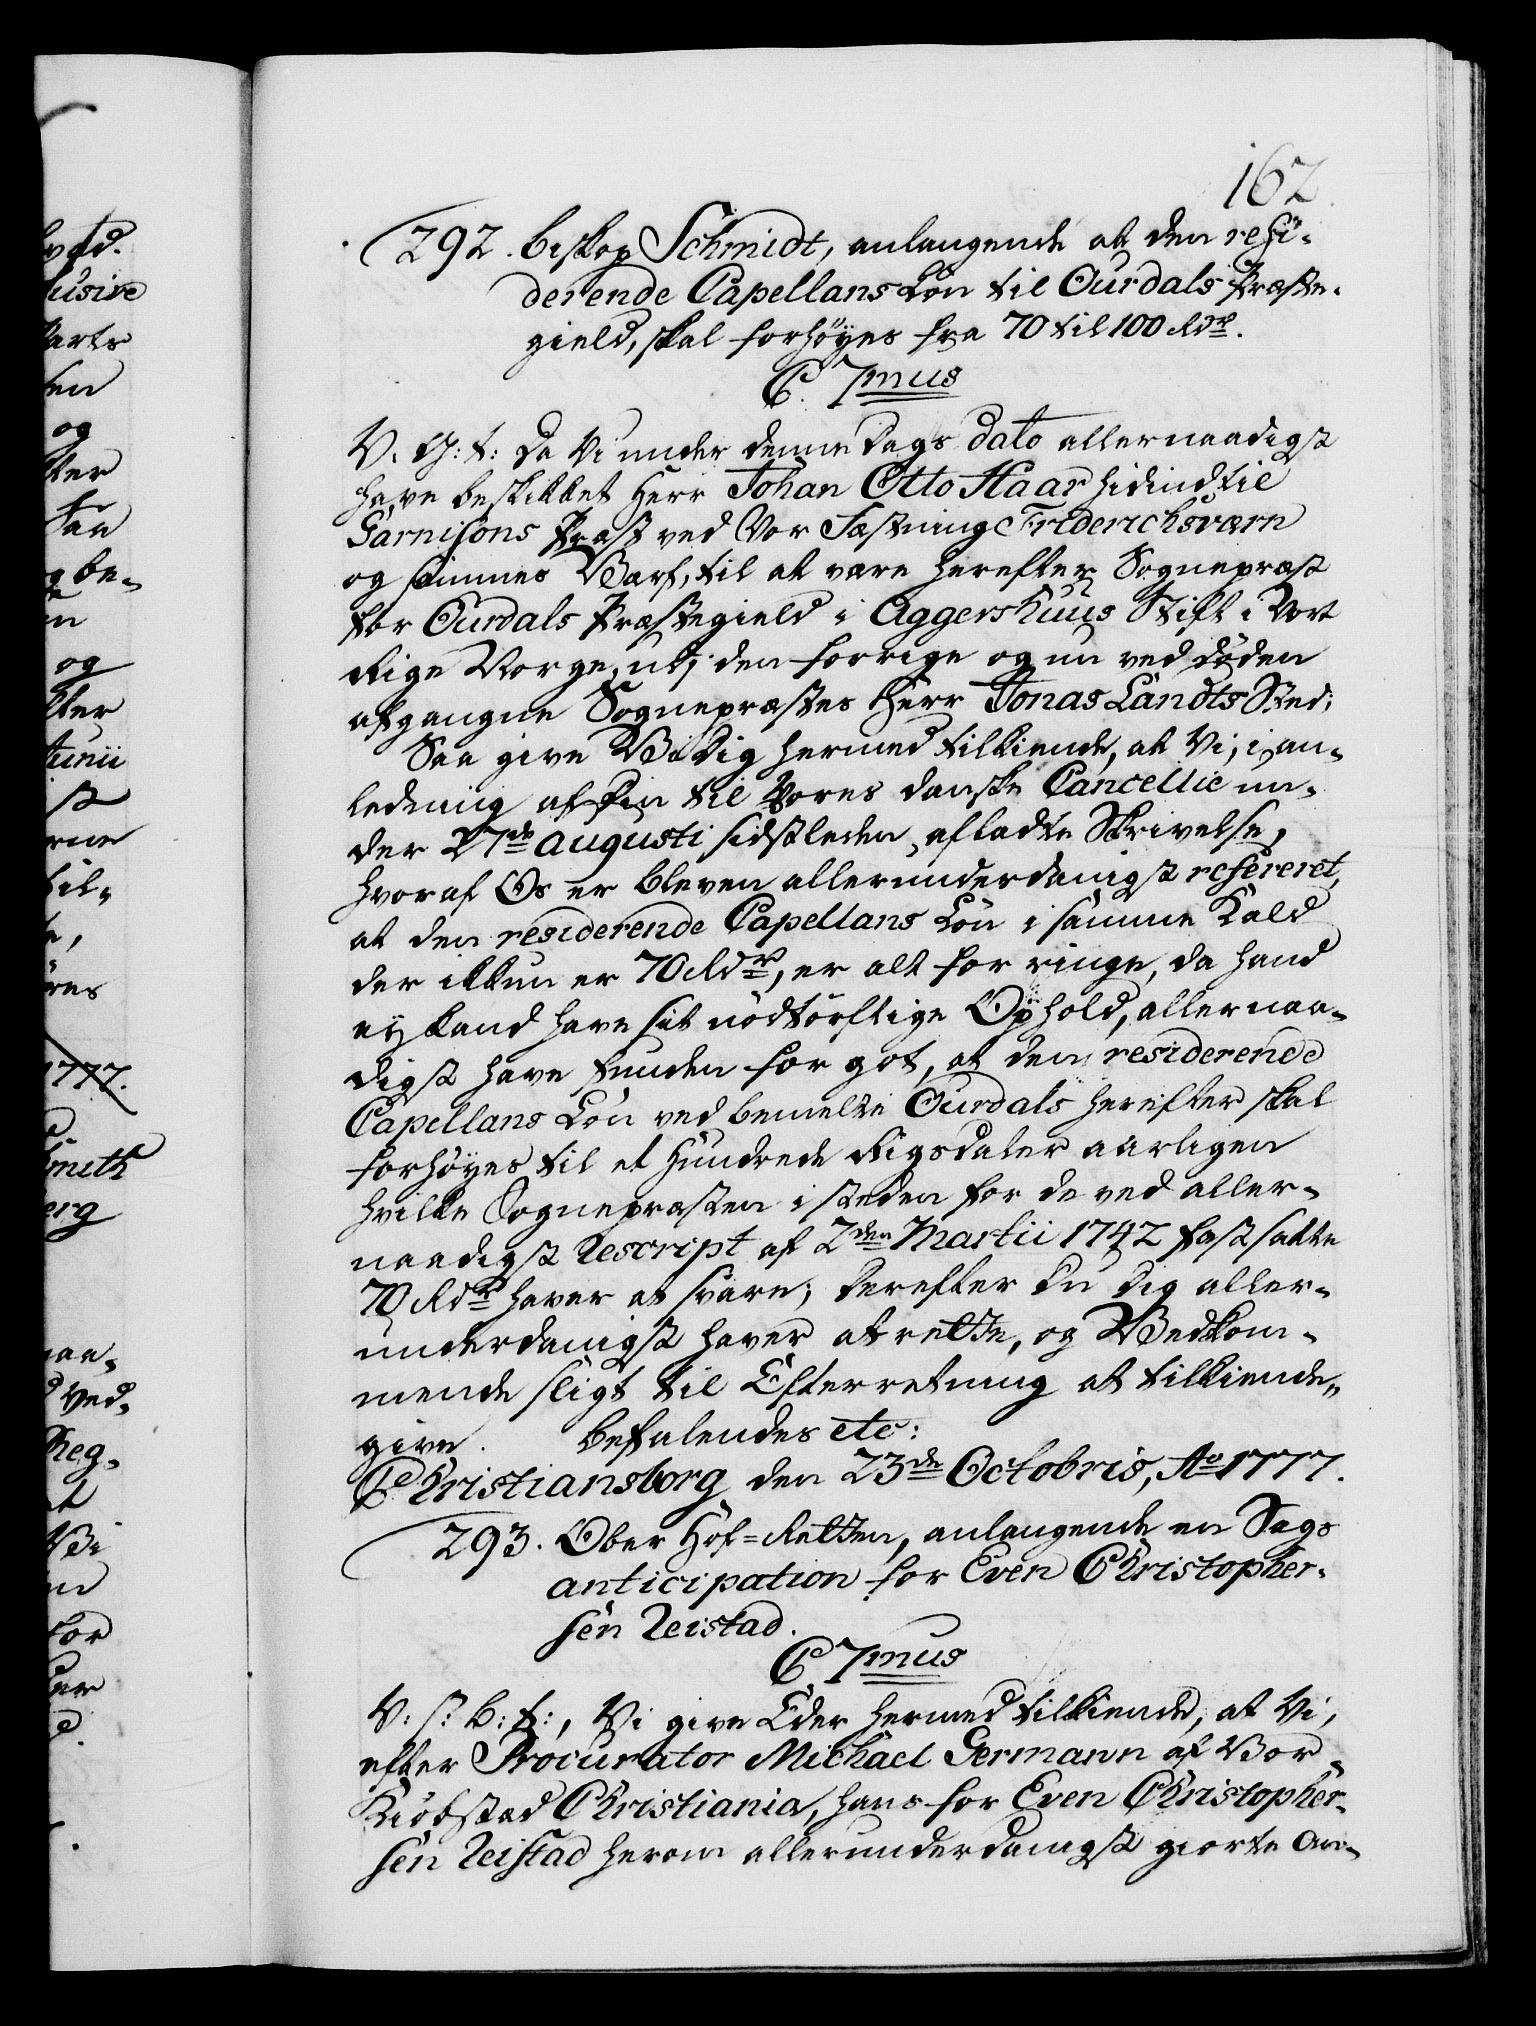 162.
292. Biskop Schmidt, anlangende at den resi-
derende Capellans Løn til Ourdals Præste-
gield, skal forhøyes fra 70 til 100 Rdr.
C. 7mus
V. G: t: Da Vi under denne Dags dato allernaadigst
have beskikket Herr Johan Otto Haar hidindtil
Garnisons Præst ved Vor Fæstning Friderichsværn
og Werf, til at være herefter Sognepræst
for Ourdals Præstegield i Aggershuus Stift i Vort
Rige Norge, udi den forrige og nu ved døden
afgangne Sognepræstes Herr Jonas Landts Sted;
Saa give Vi Dig hermed tilkiende, at Vi, i an-
ledning af Din til Vores danske Cancellie un-
der 27de Augusti sidstleden, afladte Skrivelse,
hvoraf Os er bleven allerunderdanigst refereret,
at den residerende Capellans Løn i samme Kald
der ikkun er 70 Rdr, er alt for ringe, da hand
ej kand have sit nødtørftige Ophold, allernaa-
digst have funden for got, at den residerende
Capellans Løn ved bemelte Ourdals herefter skal
forhøyes til et Hundrede Rigsdaler aarligen
hvilke Sognepræsten i steden for de ved aller-
naadigst Rescript af 2den Martii 1742 fastsatte
70 Rdr haver at svare; Derefter Du Dig aller-
underdanigst haver at rette, og Vedkom-
mende sligt til Efterretning at tilkiende-
give. Befalendes etc:
Christiansborg den 23de Octobris, Ao 1777.
293. Ober Hof=Retten, anlangende en Sags
anticipation for Even Christopher-
sen Reistad.
C 7mus
V: s: b: t:, Vi give Eder hermed tilkiende, at Vi,
efter Procurator Michael Germann af Vor
Kiøbstad Christiania, hans for Even Christopher-
sen Reistad herom allerunderdanigst giorte An-